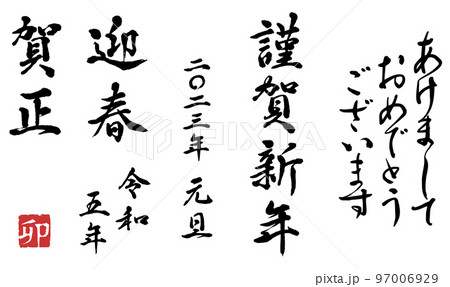 あけまして
おめでとう
ございます
謹賀新年
二〇二三年 元旦
迎春
令和
五年
賀正
卯
pixta.jp - 97006929